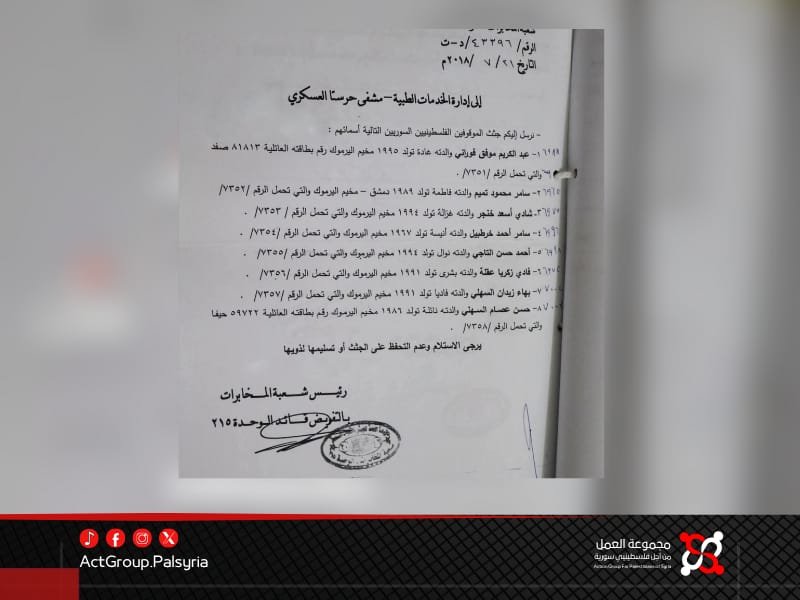 شعبة المخابرات
الرقم/ ٤٣٢٩٦ /د-ت
التاريخ ٢١/ ٧ /٢٠١٨م
إلى إدارة الخدمات الطبية – مشفى حرستا العسكري
- نرسل إليكم جثث الموقوفين الفلسطينيين السوريين التالية أسمائهم :
١- عبد الكريم موفق قوراني والدته غادة تولد ١٩٩٥ مخيم اليرموك رقم بطاقته العائلية ٨١٨١٣ صفد
والتي تحمل الرقم /٧٣٥١/ .
٢- سامر محمود تميم والدته فاطمة تولد ١٩٨٩ دمشق – مخيم اليرموك والتي تحمل الرقم /٧٣٥٢/
٣- شادي أسعد خنجر والدته غزالة تولد ١٩٩٤ مخيم اليرموك والتي تحمل الرقم /٧٣٥٣/ .
٤- سامر أحمد خرطبيل والدته أنيسة تولد ١٩٦٧ مخيم اليرموك والتي تحمل الرقم /٧٣٥٤/ .
٥- أحمد حسن التاجي والدته نوال تولد ١٩٩٤ مخيم اليرموك والتي تحمل الرقم /٧٣٥٥/ .
٦- فادي زكريا عقلة والدته بشرى تولد ١٩٩١ مخيم اليرموك والتي تحمل الرقم /٧٣٥٦/ .
٧- بهاء زيدان السهلي والدته فاديا تولد ١٩٩١ مخيم اليرموك والتي تحمل الرقم /٧٣٥٧/ .
٨- حسن عصام السهلي والدته نائلة تولد ١٩٨٦ مخيم اليرموك رقم بطاقته العائلية ٥٩٧٢٢ حيفا
والتي تحمل الرقم /٧٣٥٨/ .
يرجى الاستلام وعدم التحفظ على الجثث أو تسليمها لذويها
رئيس شعبة المخابرات
بالتفويض قائد الوحدة ٢١٥
ActGroup.Palsyria
مجموعة العمل
من أجل فلسطينيي سورية
Action Group For Palestinians of Syria